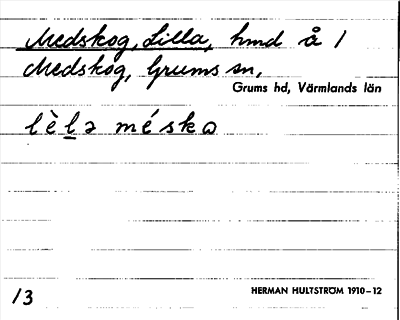 Medskog, Lilla, hmd å 1
Medskog, Grums sn,
Grums hd, Värmlands län
lèlə méskɷ
13
HERMAN HULTSTRÖM 1910–12